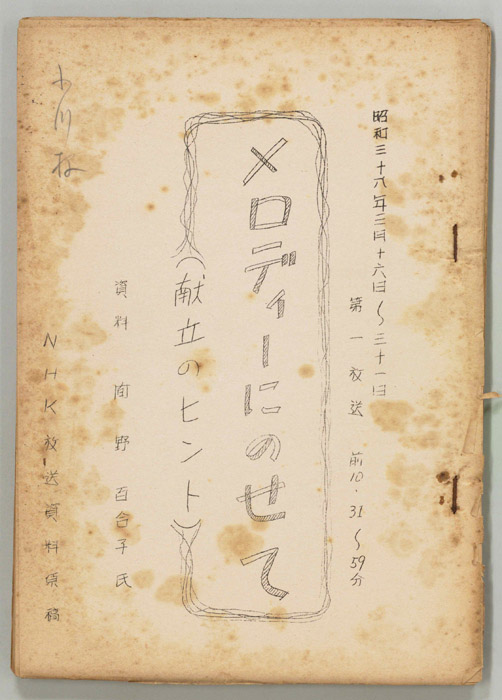 昭和三十八年三月十六日〜三十一日
第一放送 前10.31〜59分
メロディーにのせて
(献立のヒント)
資料 野百合子氏
NHK放送資料原稿
小川